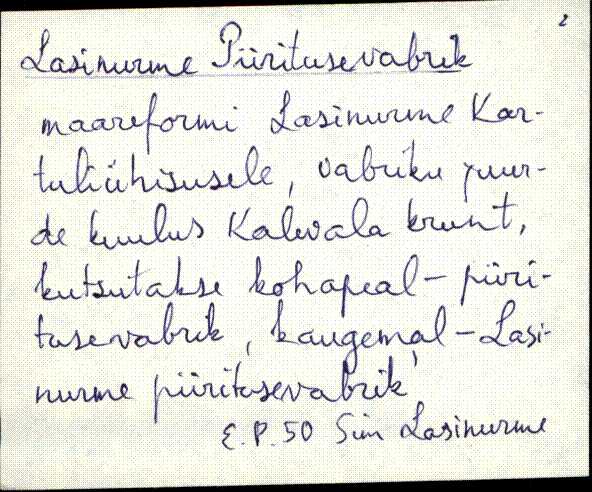 2
Lasinurme Piiritusevabrik
maareformi Lasinurme Kar-
tuliühisusele, vabriku juur-
de kuulus Kalevala krunt,
kutsutakse kohapeal – piiri-
tusevabrik, kaugemal – Lasi-
nurme piiritusevabrik
E.P. 50 Sim Lasinurme